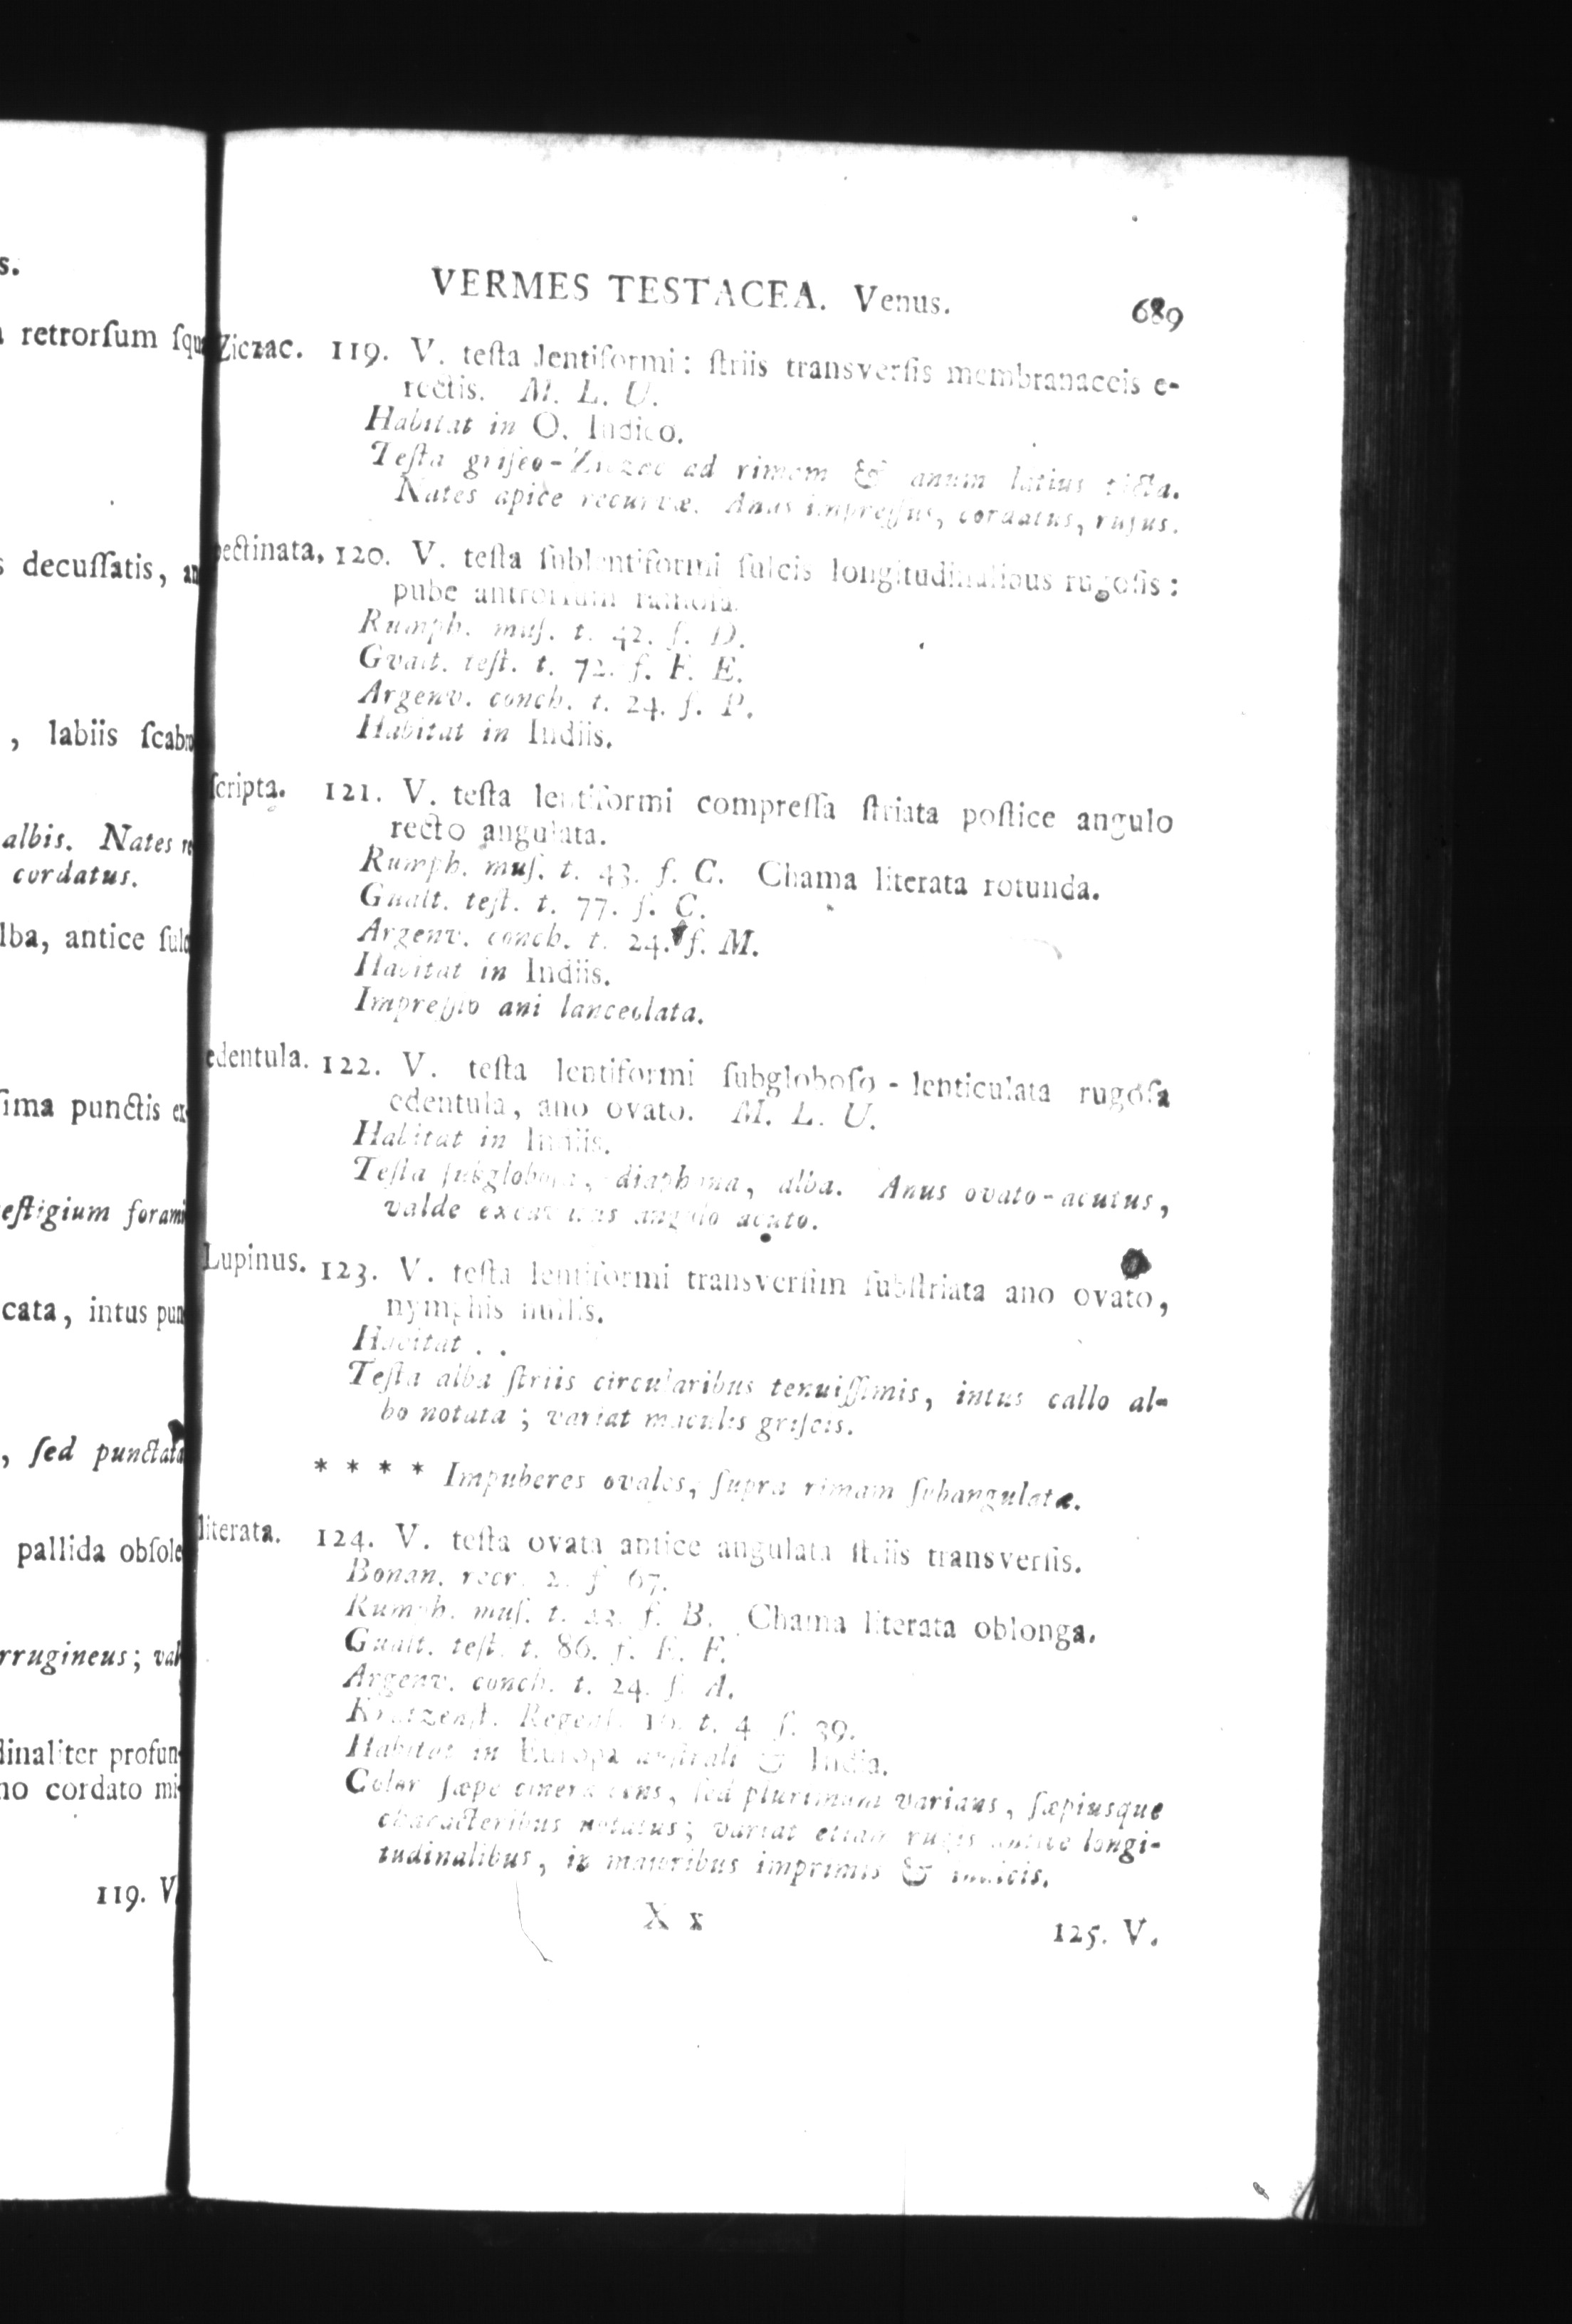 s.
retrorſum ſqua
decuſſatis, an
, labiis ſcabr
albis. Nates re
cordatus.
lba, antice ſulc
ſima punctis ex
eſtigium forami
cata, intus pun
, ſed punctata
pallida obſole
rrugineus; val
linaliter profun-
no cordato mi-
119. V.
VERMES TESTACEA. Venus. 689
Ziczac. 119. V. teſta lentiformi: ſtriis transverſis membranaceis e-
rectis. M. L. U.
Habitat in O. Indico.
Teſta griſeo-Ziczac ad rimam & anum latius picta.
Nates apice recurvæ. Anus impreſſus, cordatus, rufus.
pectinata, 120. V. teſta ſublentiformi ſulcis longitudinalibus rugoſis:
pube antrorſum ramoſa.
Rumph. muſ. t. 42. f. D.
Gvalt. teſt. t. 72. f. F. E.
Argenv. conch. t. 24. f. P.
Habitat in Indiis.
ſcripta. 121. V. teſta lentiformi compreſſa ſtriata poſtice angulo
recto angulata.
Rumph. muſ. t. 43. f. C. Chama literata rotunda.
Gualt. teſt. t. 77. f. C.
Argenv. conch. t. 24. f. M.
Habitat in Indiis.
Impreſſio ani lanceolata.
edentula. 122. V. teſta lentiformi ſubgloboſo-lenticulata rugoſa
edentula, ano ovato. M. L. U.
Habitat in Indiis.
Teſta ſubgloboſa, diaphana, alba. Anus ovato-acutus,
valde excavatus angulo acuto.
Lupinus. 123. V. teſta lentiformi transverſim ſubſtriata ano ovato,
nymphis nullis.
Habitat . .
Teſta alba ſtriis circularibus tenuiſſimis, intus callo al-
bo notata; variat maculis griſeis.
* * * * Impuberes ovales, ſupra rimam ſubangulatæ.
literata. 124. V. teſta ovata antice angulata ſtriis transverſis.
Bonan. recr. 2. f. 67.
Rumph. muſ. t. f. B. Chama literata oblonga.
Gualt. teſt. t. 86. f. E. F.
Argenv. conch. t. 24. f. A.
Kratzenſt. Regenf. t. 4 f. 39.
Habitat in Europa auſtrali & India.
Color ſæpe cineraſcens, ſed plurimum varians, ſæpiusque
characteribus notatus; variat etiam rugis antice longi-
tudinalibus, in mauribus imprimis & indicis.
X x
125. V.